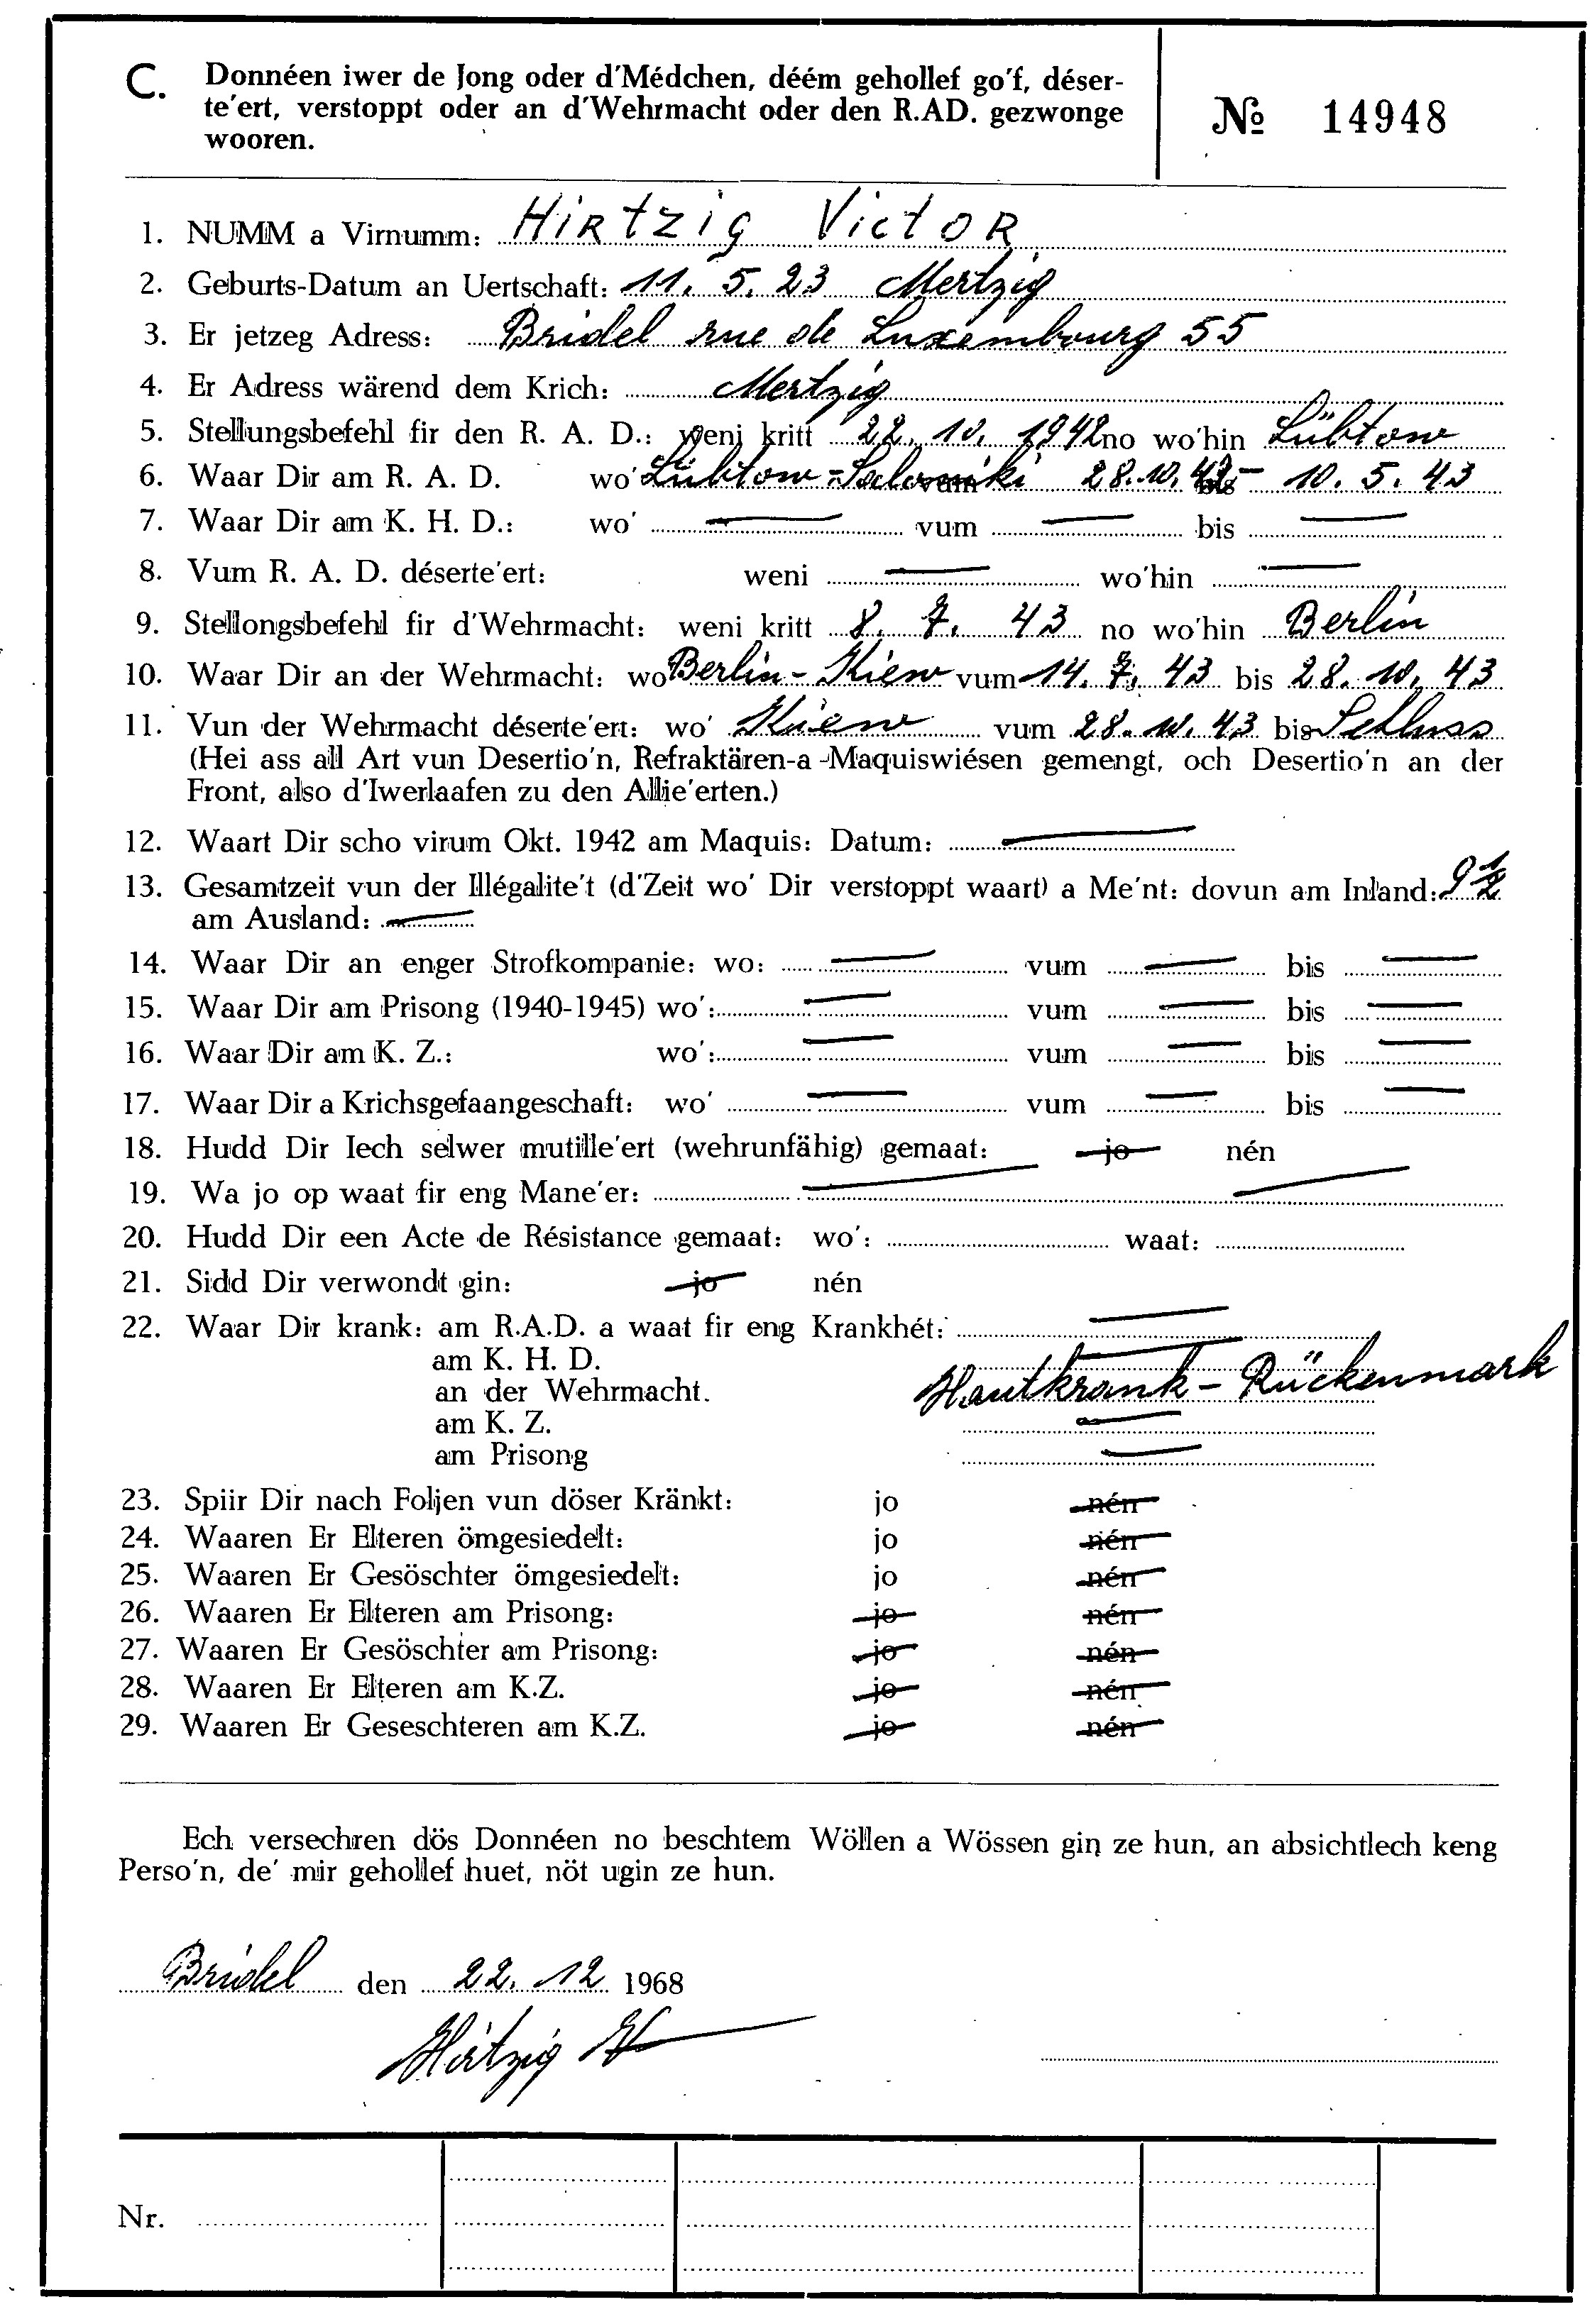 C. Donnéen iwer de Jong oder d'Médchen, déém gehollef go'f, déser-
te'ert, verstoppt oder an d'Wehrmacht oder den R.AD. gezwonge
wooren.
№ 14948
1. NUMM a Virnumm: Hirtzig Victor
2. Geburts-Datum an Uertschaft: 11. 5. 23 Mertzig
3. Er jetzeg Adress: Bridel rue de Luxembourg 55
4. Er Adress wärend dem Krich: Mertzig
5. Stellungsbefehl fir den R. A. D.: weni kritt 22. 10. 1942 no wo'hin Lübtow
6. Waar Dir am R. A. D. wo' Lübtow - vum 28.10.42 bis - 10. 5. 43
7. Waar Dir am K. H. D.: wo' — vum — bis —
8. Vum R. A. D. déserte'ert: weni — wo'hin —
9. Stellongsbefehl fir d'Wehrmacht: weni kritt 8. 7. 43 no wo'hin Berlin
10. Waar Dir an der Wehrmacht: wo Berlin - Kiew vum 14. 7. 43 bis 28. 10. 43
11. Vun der Wehrmacht déserte'ert: wo' Kiew vum 28. 10. 43 bis Schluss
(Hei ass all Art vun Desertio'n, Refraktären-a-Maquiswiésen gemengt, och Desertio'n an der
Front, also d'Iwerlaafen zu den Allie'erten.)
12. Waart Dir scho virum Okt. 1942 am Maquis: Datum: —
13. Gesamtzeit vun der Illégalite't (d'Zeit wo' Dir verstoppt waart) a Me'nt: dovun am Inland: 9 1/2
am Ausland: —
14. Waar Dir an enger Strofkompanie: wo: — vum — bis —
15. Waar Dir am Prisong (1940-1945) wo': — vum — bis —
16. Waar Dir am K. Z.: wo': — vum — bis —
17. Waar Dir a Krichsgefaangeschaft: wo' — vum — bis —
18. Hudd Dir Iech selwer mutille'ert (wehrunfähig) gemaat: jo nén
19. Wa jo op waat fir eng Mane'er: — —
20. Hudd Dir een Acte de Résistance gemaat: wo': waat:
21. Sidd Dir verwondt gin: jo nén
22. Waar Dir krank: am R.A.D. a waat fir eng Krankhét: —
am K. H. D. —
an der Wehrmacht. Hautkrank - Rückenmark
am K. Z. —
am Prisong —
23. Spiir Dir nach Foljen vun döser Kränkt: jo nén
24. Waaren Er Elteren ömgesiedelt: jo nén
25. Waaren Er Gesöschter ömgesiedelt: jo nén
26. Waaren Er Elteren am Prisong: jo nén
27. Waaren Er Gesöschter am Prisong: jo nén
28. Waaren Er Elteren am K.Z. jo nén
29. Waaren Er Geseschteren am K.Z. jo nén
Ech versechren dös Donnéen no beschtem Wöllen a Wössen gin ze hun, an absichtlech keng
Perso'n, de' mir gehollef huet, nöt ugin ze hun.
Bridel den 22. 12 1968
Hirtzig
Nr.